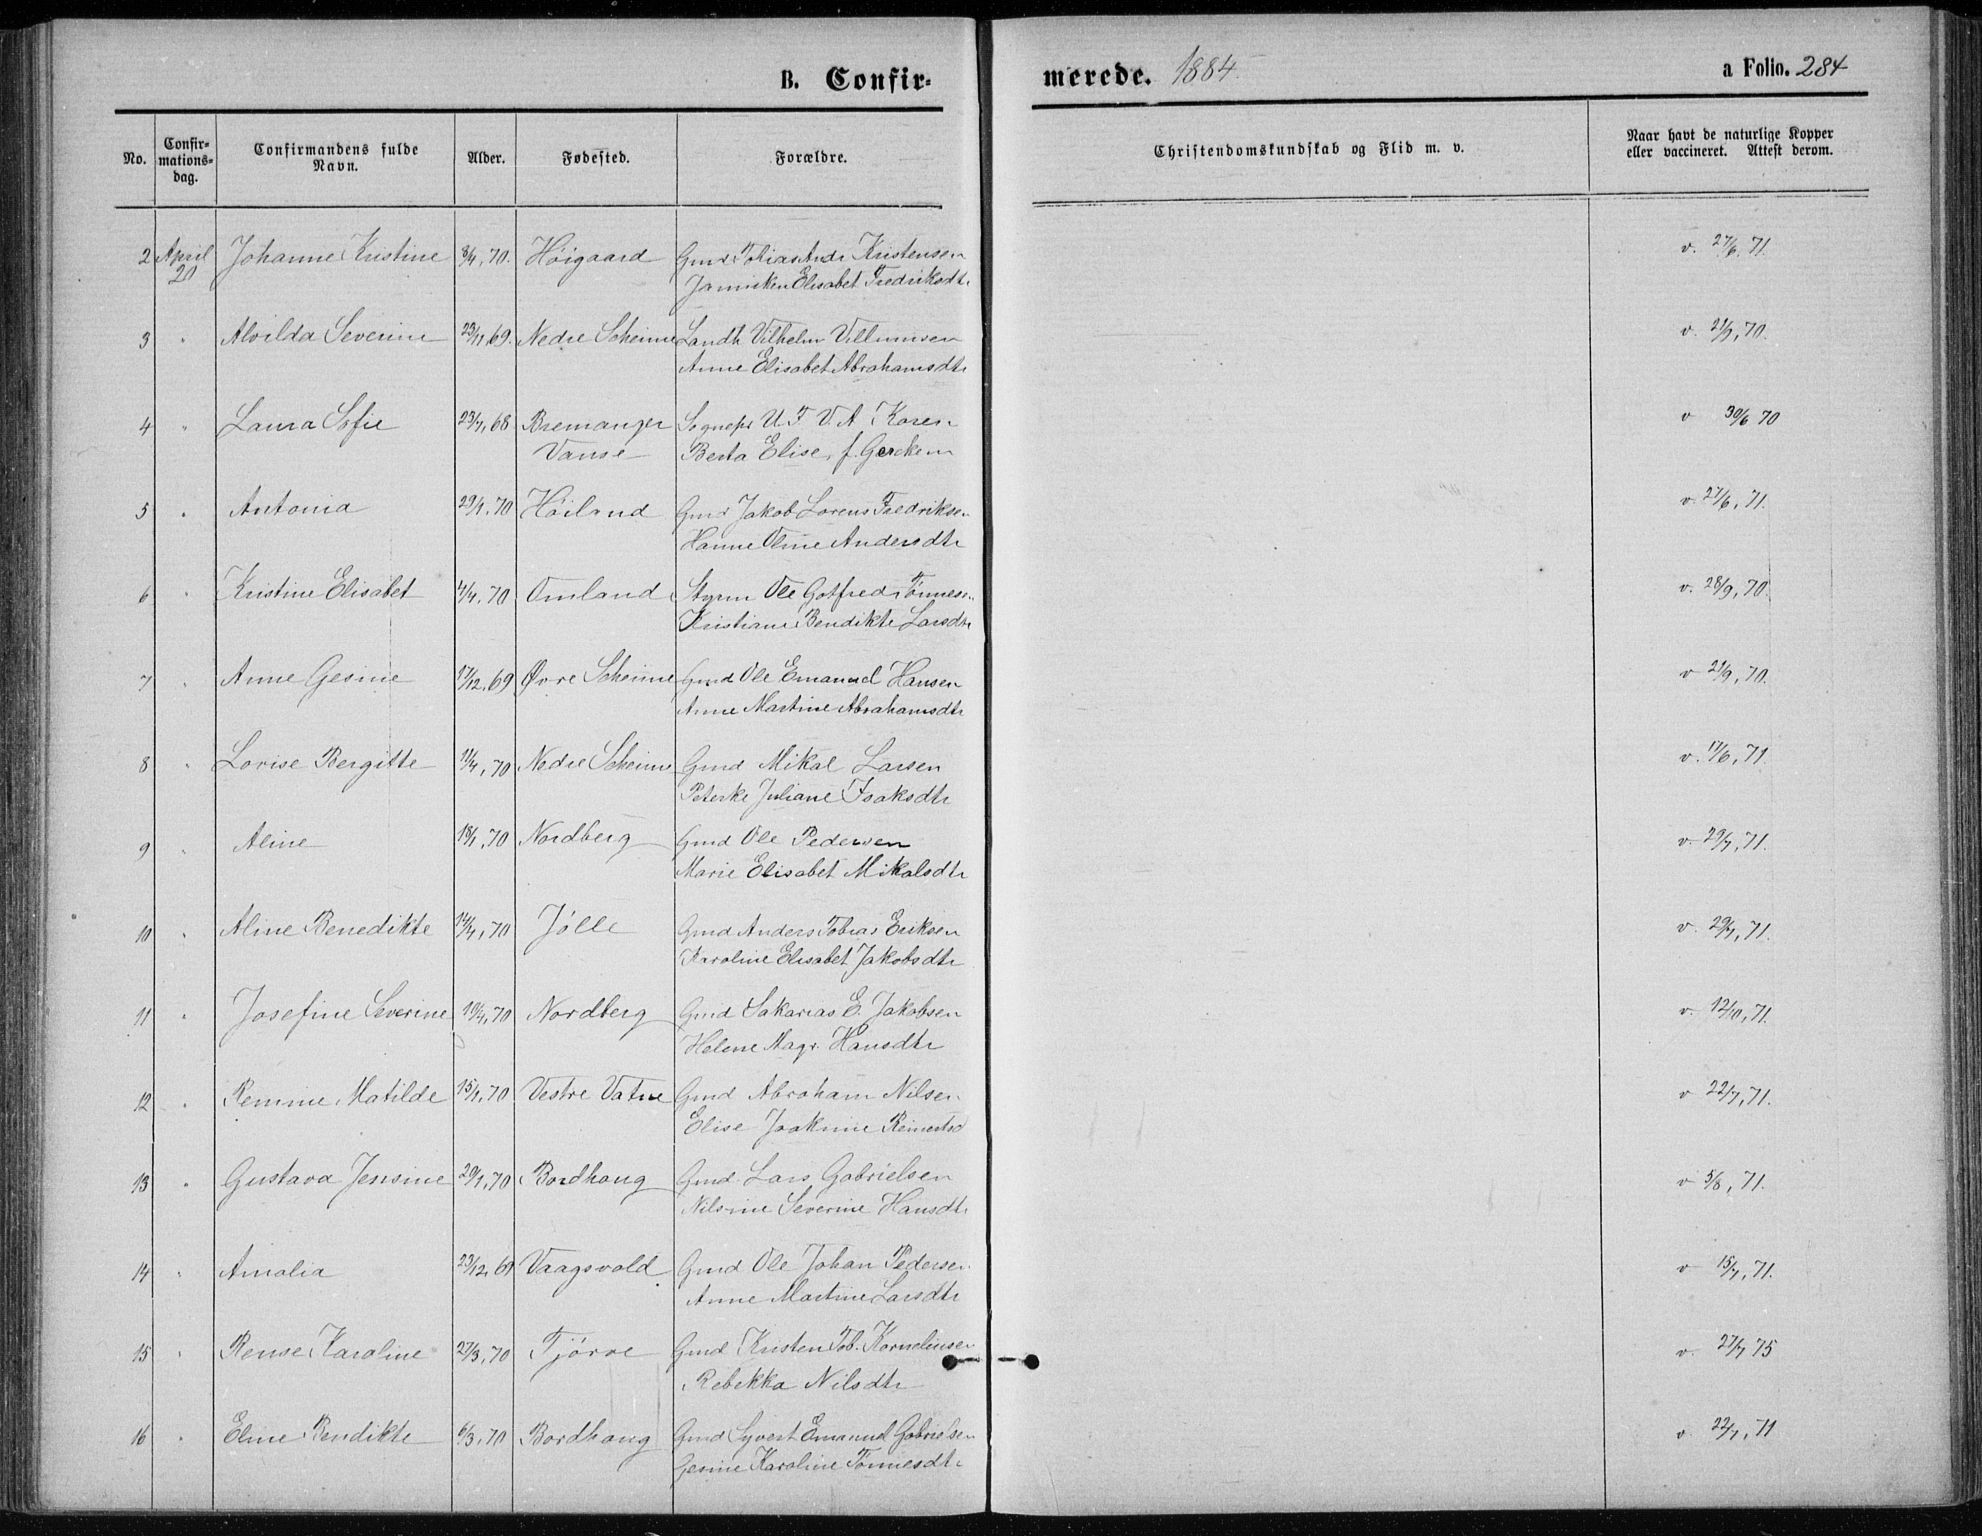 B. Confir-
merede. 1884.
a Folio. 284
No.
Confir-
mations-
dag.
Confirmandens fulde
Navn.
Alder.
Fødested.
Forældre.
Christendomskundskab og Flid m. v.
Naar havt de naturlige Kopper
eller vaccineret. Attest derom.
2 April Johanne Kristine 8/4, 70. Høigaard Gmd Tobias Andr Kristensen v. 27/6, 71.
20 Janniken Elisabet Fredriksdtr
3 " Alvilda Severine 23/11, 69. Nedre Scheime Landh Vilhelm Villumsen v. 21/9, 70.
Anne Elisabet Abrahamsdtr
4 " Laura Sofie 23/7, 68 Bremanger Sognepr U. F. V. A. Koren v 30/6 70
Vanse Berta Elise, f. Gercken
5 " Antonia 29/1, 70 Høiland Gmd Jakob Lorens Fredriksen v. 27/6, 71.
Hanne Oline Andersdtr
6 " Kristine Elisabet 4/4, 70 Omland Styrm Ole Gotfred Tønness. v. 28/9, 70.
Kristiane Bendikte Larsdtr
7 " Anne Gesine 17/12, 69 Øvre Scheime Gmd Ole Emanuel Hansen v 21/9, 70.
Anne Martine Abrahamsdtr
8 " Lovise Bergitte 11/4, 70 Nedre Scheime Gmd Mikal Larsen v. 17/6, 71.
Peterke Juliane Isaksdtr
9 " Aline 18/1, 70 Nordberg Gmd Ole Pedersen v. 29/7, 71.
Marie Elisabet Mikalsdtr
10 " Aline Benedikte 14/4, 70 Jølle Gmd Anders Tobias Eriksen v. 29/7, 71.
Karoline Elisabet Jakobsdtr
11 " Josefine Severine 19/4, 70 Nordberg Gmd Sakarias E. Jakobsen v. 12/10, 71.
Helene Magr. Hansdtr
12 " Remine Matilde 15/1, 70 Vestre Vatne Gmd Abraham Nilsen v 22/7, 71.
Elise Joakime Reinertsd
13 " Gustava Jensine 20/1, 70 Bordhaug Gmd. Lars Gabrielsen v 5/8, 71.
Nilsine Severine Hansdtr
14 " Amalia 23/12, 69 Vaagsvold Gmd Ole Johan Pedersen v 15/7, 71.
Anne Martine Larsdtr
15 " Rense Karoline 27/3, 70 Tjørve Gmd Kristen Tob. Korneliusen v. 27/7 75
Rebekka Nilsdtr
16 " Eline Bendikte 6/3, 70 Bordhaug Gmd Syvert Emanuel Gabrielsen v. 22/7, 71
Gesine Karoline Tønnesdtr